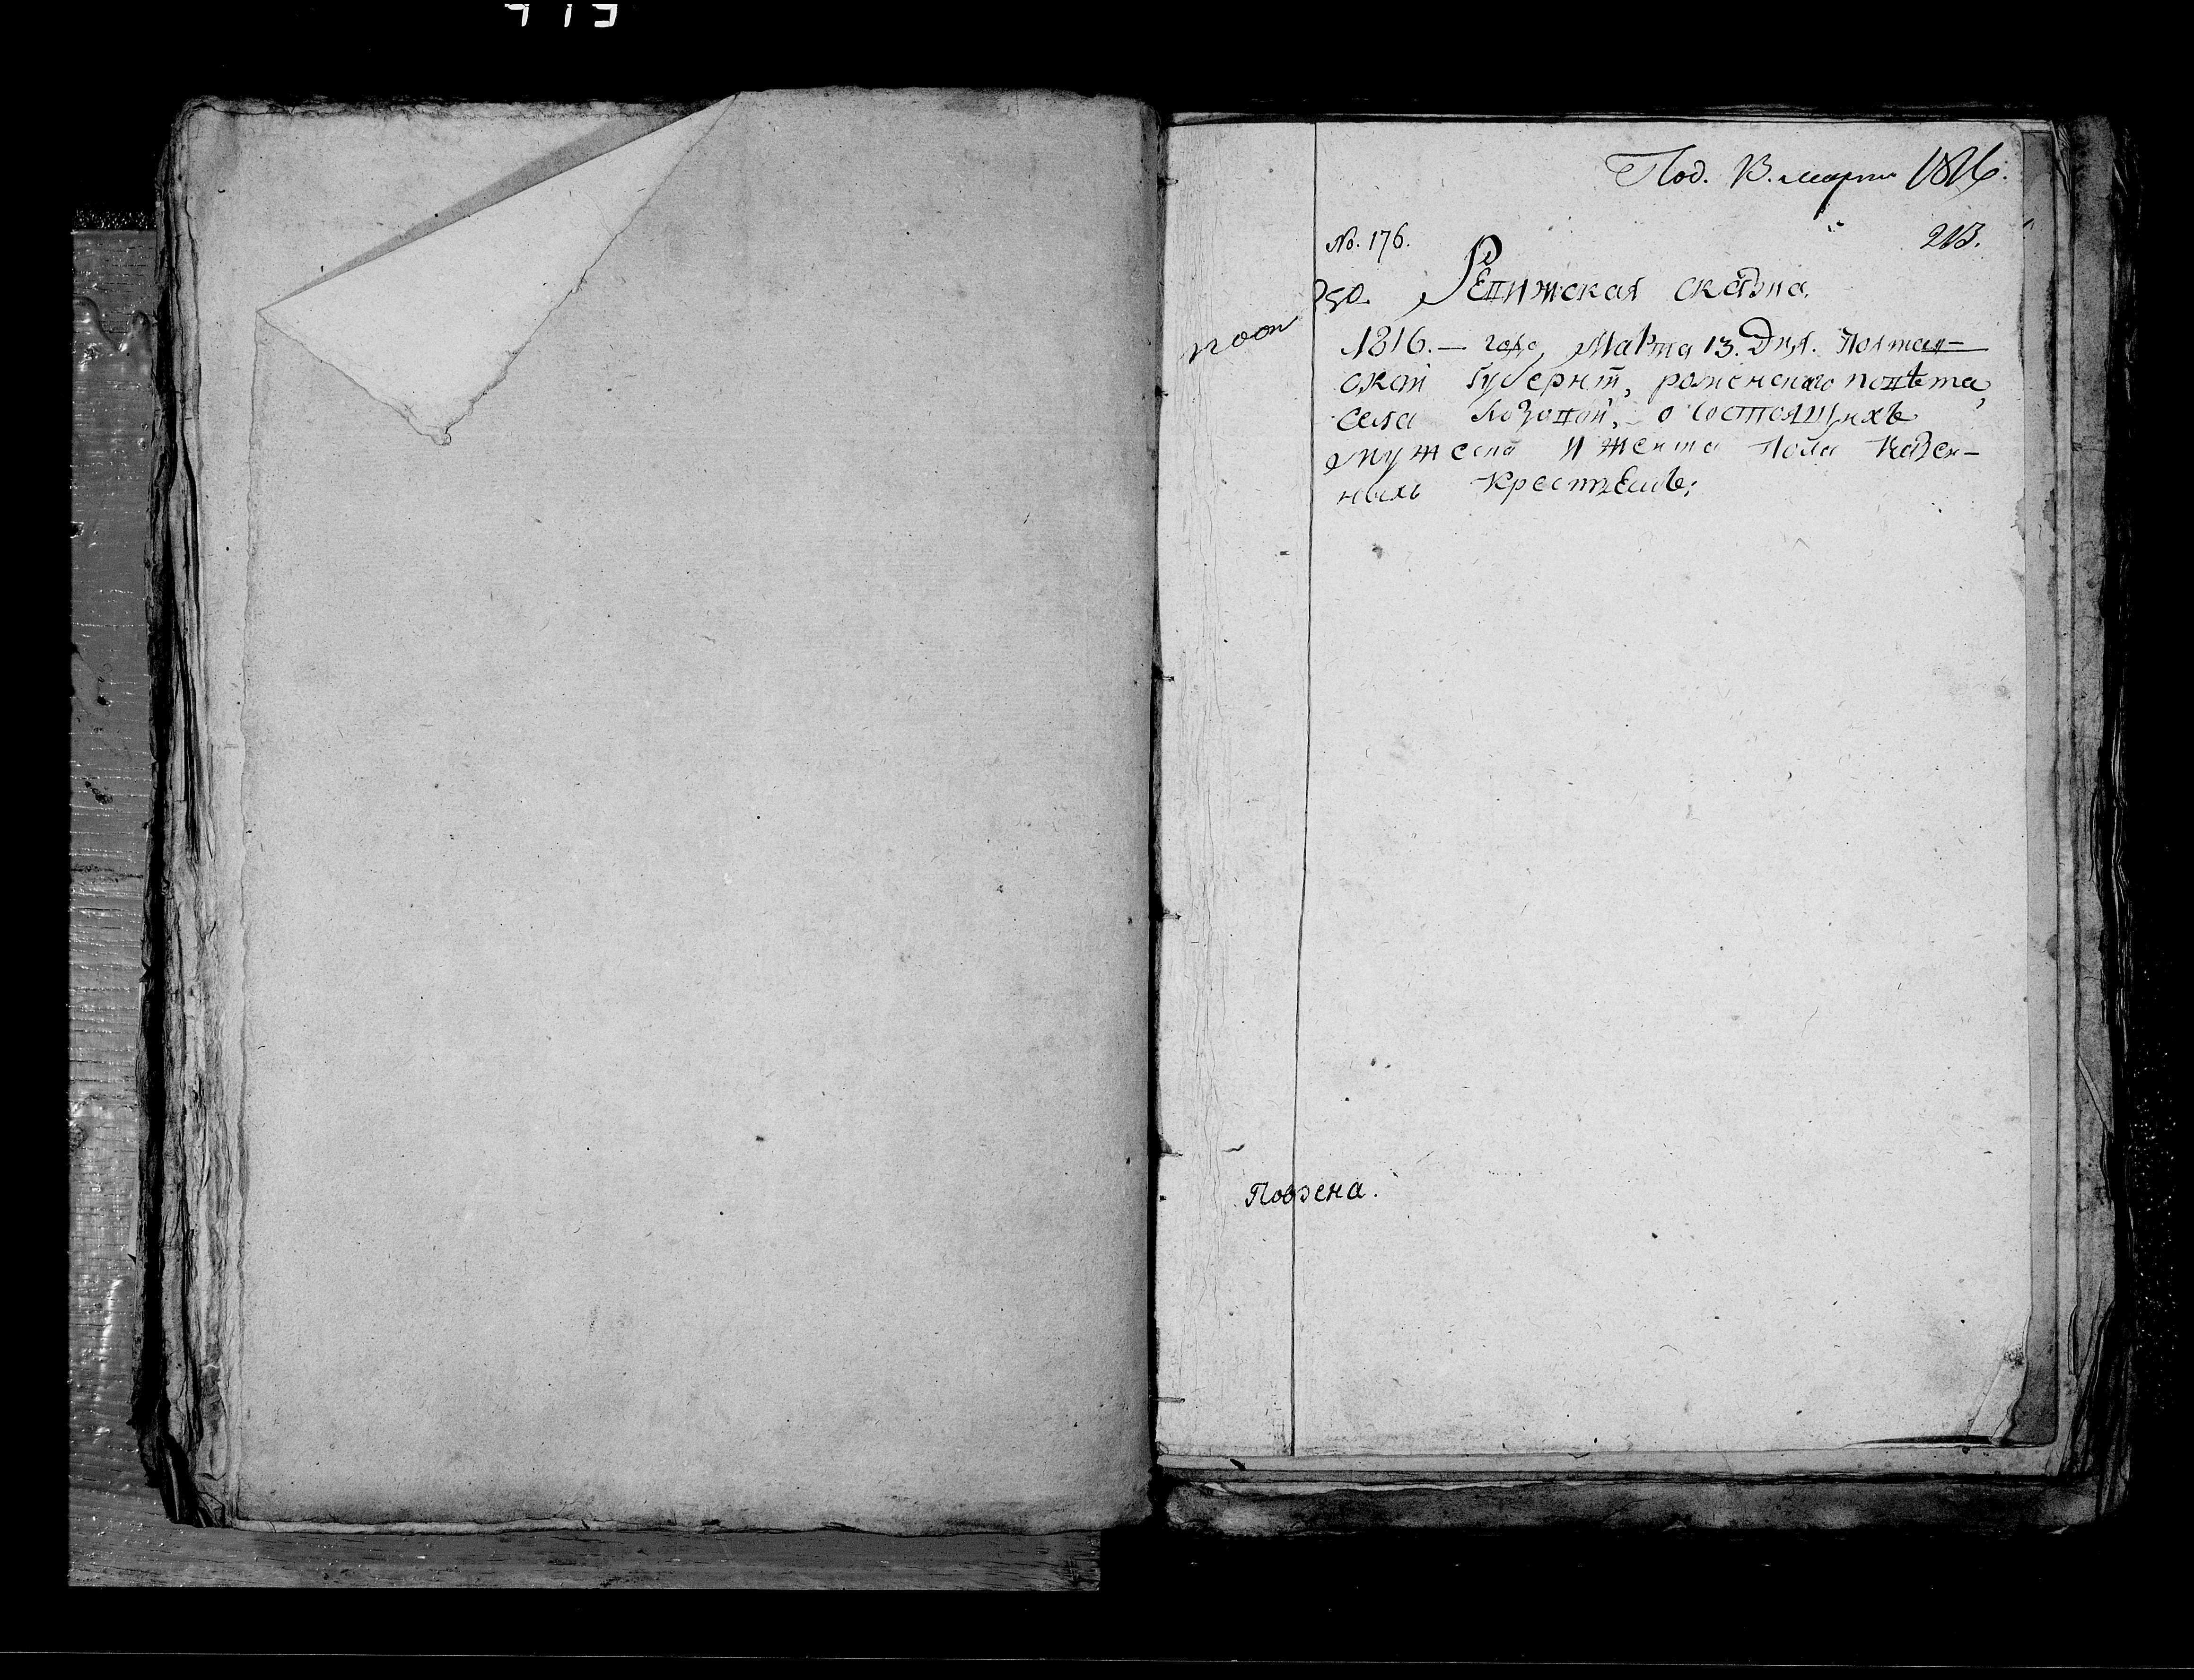 Под. 13. марта 1816.
No. 176.
213.
250. Ревижская скаѕка
1816.— года, Марта 13. Дня. Полтав—
ской Губерніи, роменского повѣта,
села Лозовой, о состоящихъ
мужеска и женска Пола Казен—
ныхъ Крестьянъ;
Повѣрена.